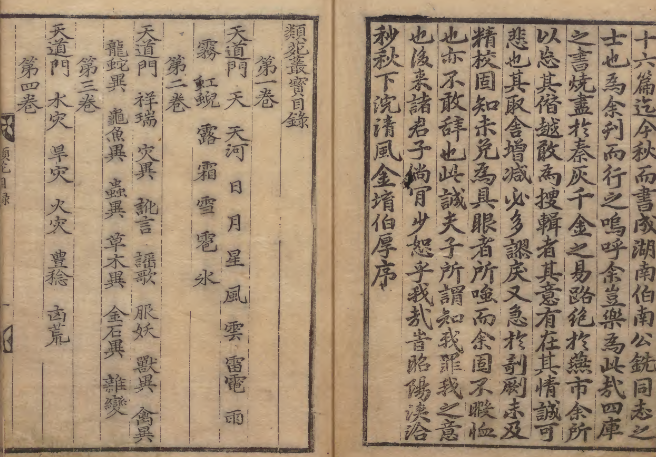 十六篇迄今秋而書成湖南伯南公銑同志之
士也為余刊而行之嗚呼余豈樂為此哉四庫
之書燒盡於秦灰千金之易路絶於燕市余所
以忘其僭越敢為搜輯者其意有在其情誠可
悲也其取舍增减必多謬戾又急於剞劂未及
精校固知未免為具眼者所唾而余固不暇恤
也亦不敢辭也此誠夫子所謂知我罪我之意
也後来諸君子倘肯少恕乎我哉旹昭陽浹洽
秒秋下浣清風金堉伯厚序
類苑叢寳目錄
第一巻
天道門 天 天河 日 月 星 風 雲 雷電 雨
霧 虹蜺 露 霜 雪 雹 氷
第二巻
天道門 祥瑞 灾異 訛言 謡歌 服妖 獸異 禽異
龍蛇異 龜魚異 蟲異 草木異 金石異 雜變
第三巻
天道門 水灾 旱灾 火灾 豊稔 凶荒
第四巻
類苑目録
一